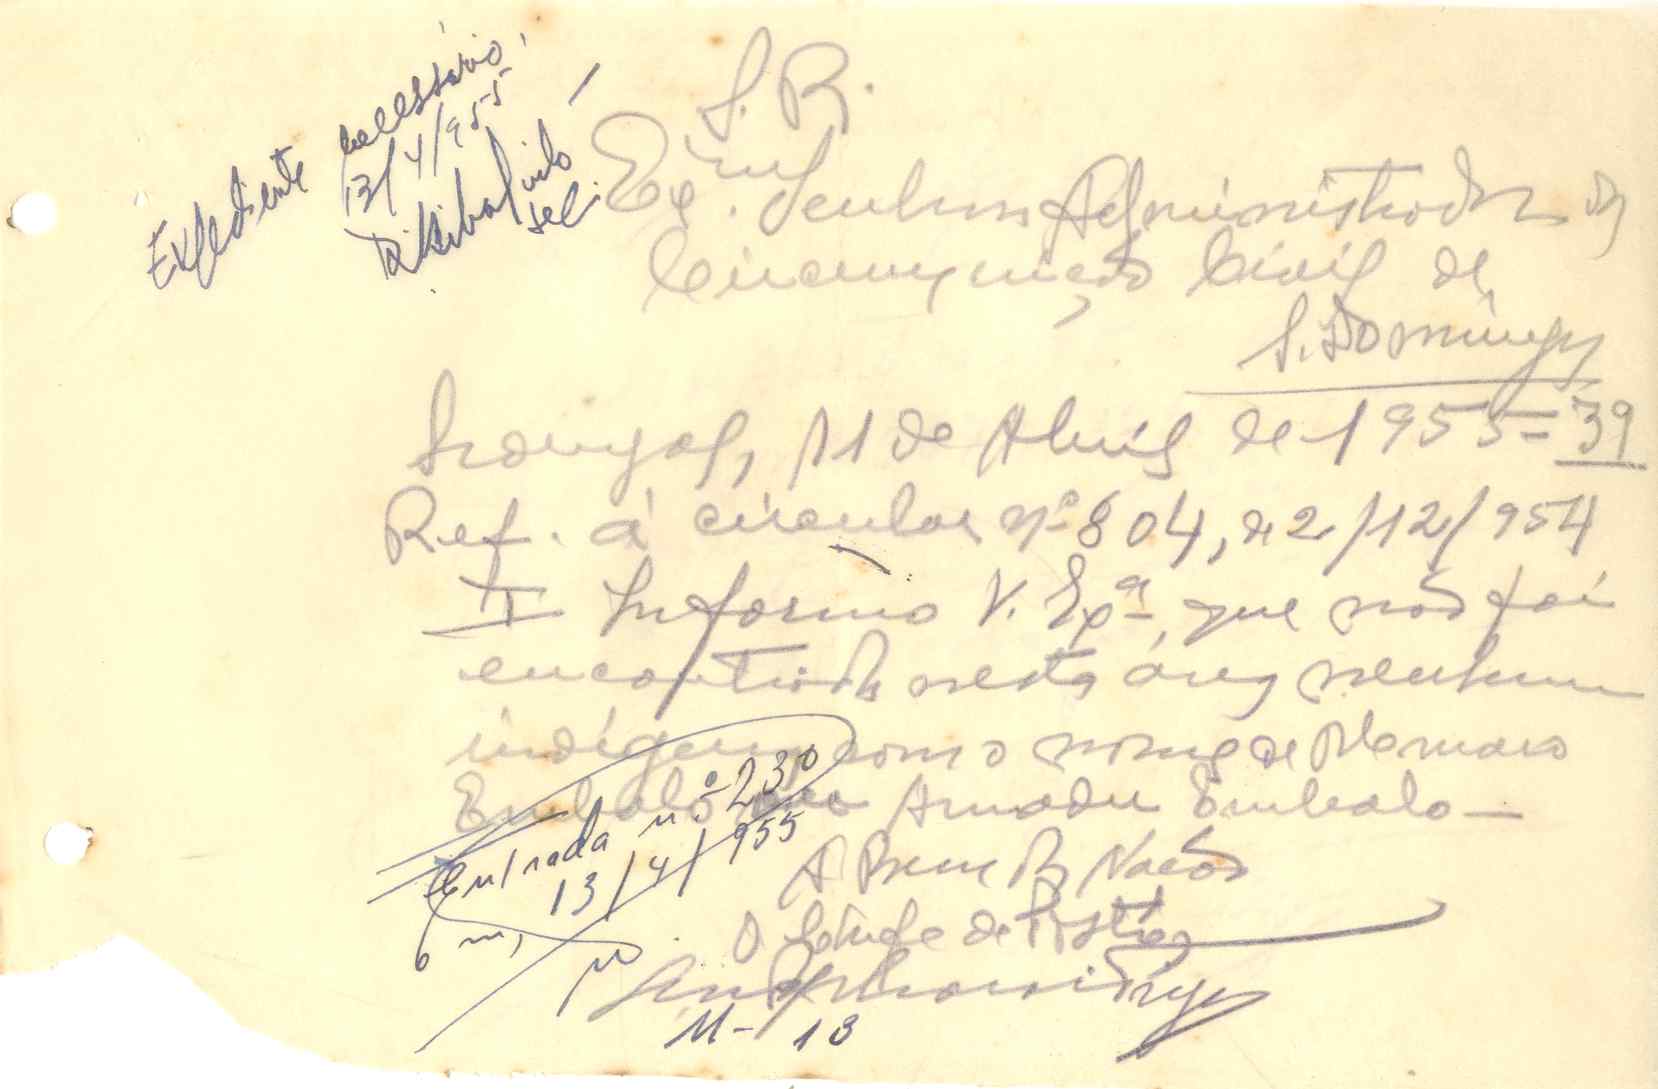 Expediente necessário.
13/4/955
S. R.
Exmº. Senhor Administrador da
Circunscrição Civil de
S. Domingos
11 de Abril de 1955=39
Ref. á circular nº 804, de 2/12/954
I Informo V. Exª, que não foi
encontrado nesta área nenhum
indígena com o nome de Mamaro
Embaló Amadu Embalo—
Entrada n.º 230
13/4/955
A Bem da Nação
O Chefe de Posto
M-13